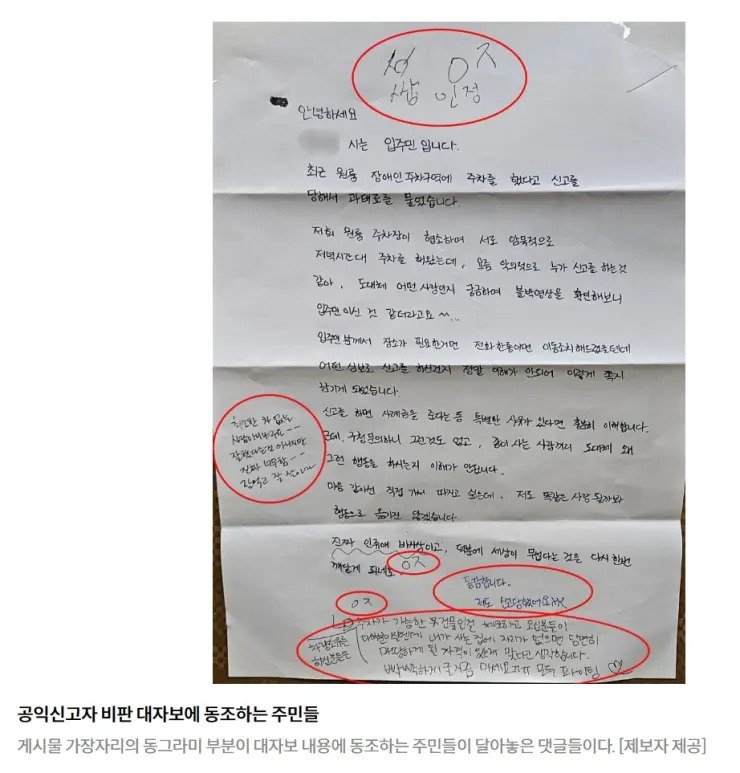 ㅇㅈ
쌉 인정
안녕하세요
사는 입주민 입니다.
최근 원룸 장애인 주차구역에 주차를 했다고 신고를
당해서 과태료를 물었습니다.
저희 원룸 주차장이 협소하여 서로 암묵적으로
저녁시간대 주차를 해왔는데, 요즘 악의적으로 누가 신고를 하는것
같아, 도대체 어떤 사람인지 궁금하여 블박영상을 확인해보니
입주민 이신 것 같더라고요 ^^...
입주민 분께서 장소가 필요한거면 전화 한통이면 이동조치 해드렸을텐데
어떤 심보로 신고를 하신건지 정말 이해가 안되어 이렇게 쪽지
남기게 되었습니다.
신고를 하면 사례금을 준다는 등 특별한 사유가 있다면 충분히 이해합니다.
근데, 구청 문의하니 그런것도 없고, 같이 사는 사람끼리 도대체 왜
그런 행동을 하시는지 이해가 안됩니다.
마음 같아선 직접 가서 따지고 싶은데, 저도 똑같은 사람 될까봐
행동으로 옮기진 않겠습니다
진짜 인류애 바사삭이고, 덕분에 세상이 무섭다는 것을 다시한번
깨닫게 되네요.
ㅇㅈ
차 없는
잘했다는건 아니지만
진짜 너무함--
잘 살아라
동감합니다.
저도 신고당했어요
ㅇㅈ
주차가 가능한 부건물인걸 체크하고 오신분들이
차량소유를 하신분들은
내가 사는 집에 자리가 없으면 당연히
자격이 있는게 맞다고 생각합니다.
모두 파이팅 ♡
공익신고자 비판 대자보에 동조하는 주민들
게시물 가장자리의 동그라미 부분이 대자보 내용에 동조하는 주민들이 달아놓은 댓글들이다. [제보자 제공]